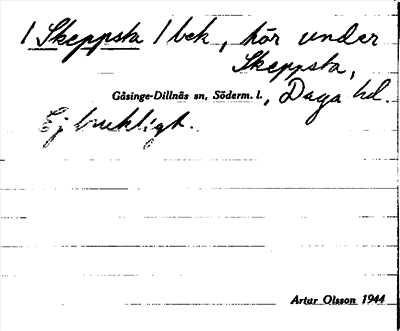 / Skeppsta / bek, hör under
Skeppsta,
Gåsinge-Dillnäs sn, Söderm. l., Daga hd.
Ej brukligt.
Artur Olsson 1944